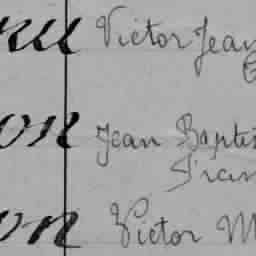 Victor Jean
on Jean Baptis
Fran
on Victor M